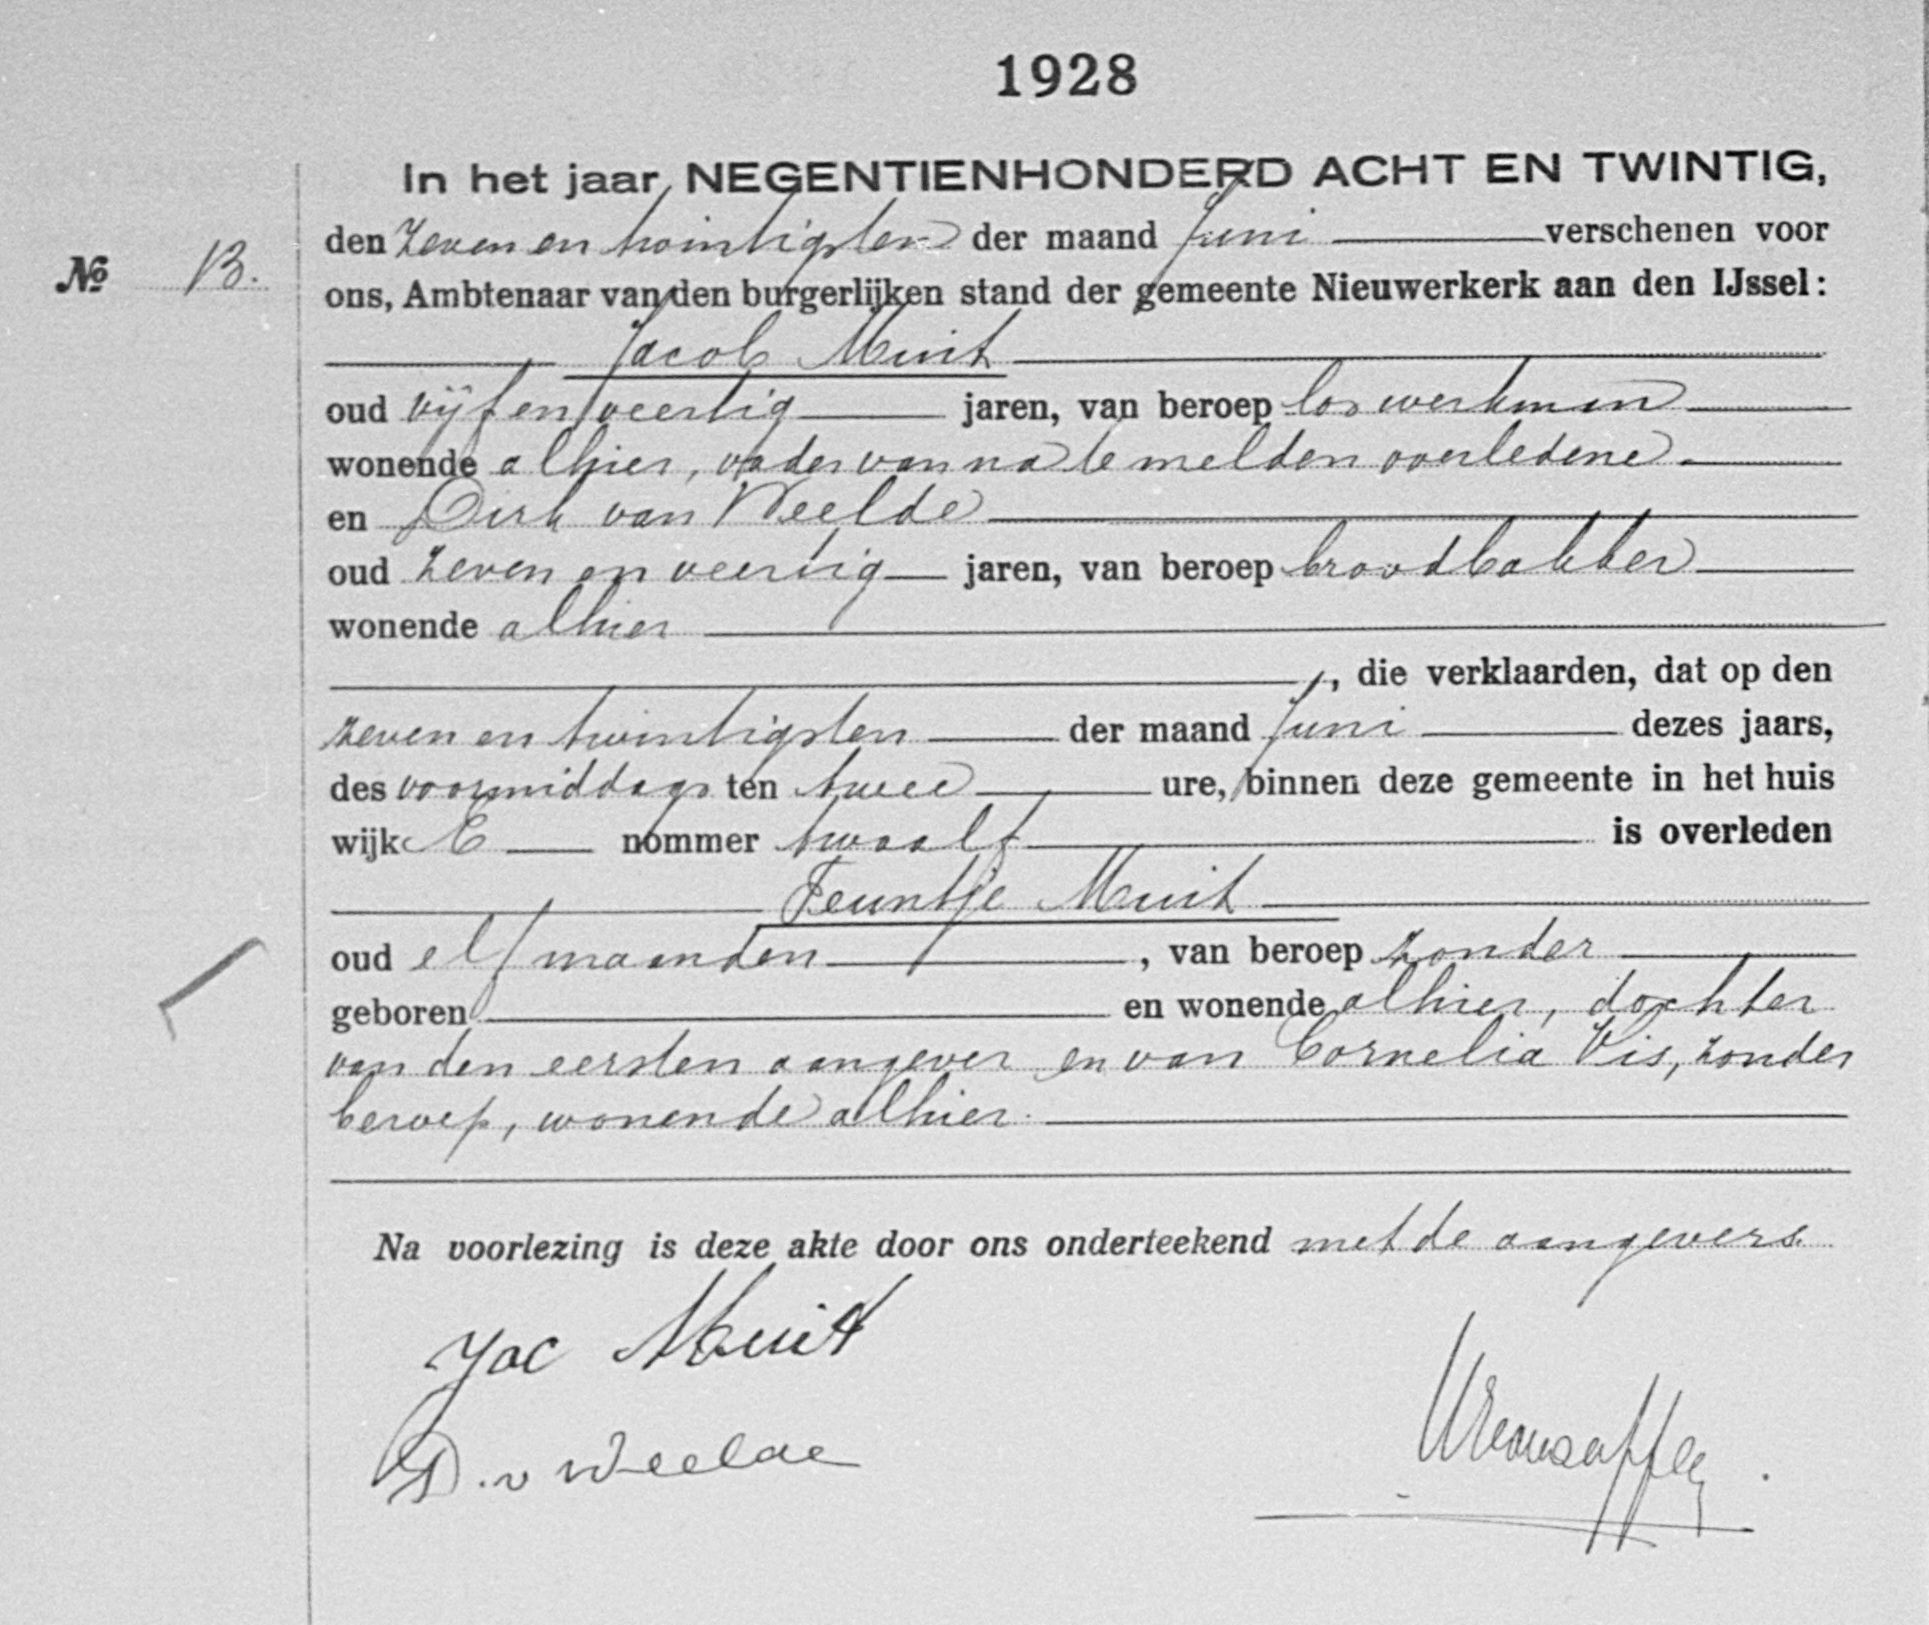 1928
In het jaar NEGENTIENHONDERD ACHT EN TWINTIG,
den zeven en twintigsten der maand Juni verschenen voor
No 13.
ons, Ambtenaar van den burgerlijken stand der gemeente Nieuwerkerk aan den IJssel:
Jacob Muit
oud vijf en veertig jaren, van beroep los werkman
wonende alhier, vader van na te melden overledene
en Dirk van Weelde
oud zeven en veertig jaren, van beroep broodbakker
wonende alhier
, die verklaarden, dat op den
zeven en twintigsten der maand Juni dezes jaars,
des voormiddags ten twee ure, binnen deze gemeente in het huis
wijk E nommer twaalf is overleden
Teuntje Muit
oud elf maanden, van beroep zonder
geboren en wonende alhier, dochter
van den eersten aangever en van Cornelia Vis, zonder
beroep, wonende alhier.
Na voorlezing is deze akte door ons onderteekend met de aangevers.
Jac Muit
D. v Weelde